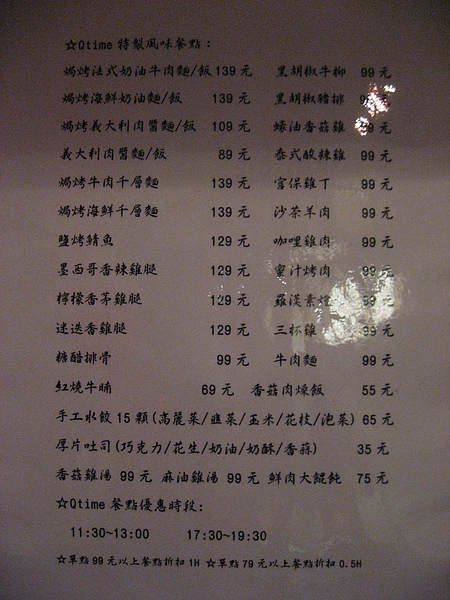 ☆Qtime 特製風味餐點：
焗烤法式奶油牛肉麵/飯 139 元 黑胡椒牛柳 99 元
焗烤海鮮奶油麵/飯 139 元 黑胡椒豬排 元
焗烤義大利肉醬麵/飯 109 元 蠔油香菇雞 99 元
義大利肉醬麵/飯 89 元 泰式酸辣雞 99 元
焗烤牛肉千層麵 139 元 宮保雞丁 99 元
焗烤海鮮千層麵 139 元 沙茶羊肉 99 元
鹽烤鯖魚 129 元 咖哩雞肉 99 元
墨西哥香辣雞腿 129 元 蜜汁烤肉 99 元
檸檬香茅雞腿 129 元 羅漢素燴 99 元
迷迭香雞腿 129 元 三杯雞 99 元
糖醋排骨 99 元 牛肉麵 99 元
紅燒牛腩 69 元 香菇肉燥飯 55 元
手工水餃 15 顆(高麗菜/韭菜/玉米/花枝/泡菜) 65 元
厚片吐司(巧克力/花生/奶油/奶酥/香蒜) 35 元
香菇雞湯 99 元 麻油雞湯 99 元 鮮肉大餛飩 75 元
☆Qtime 餐點優惠時段:
11:30~13:00 17:30~19:30
☆單點 99 元以上餐點折扣 1H ☆單點 79 元以上餐點折扣 0.5H